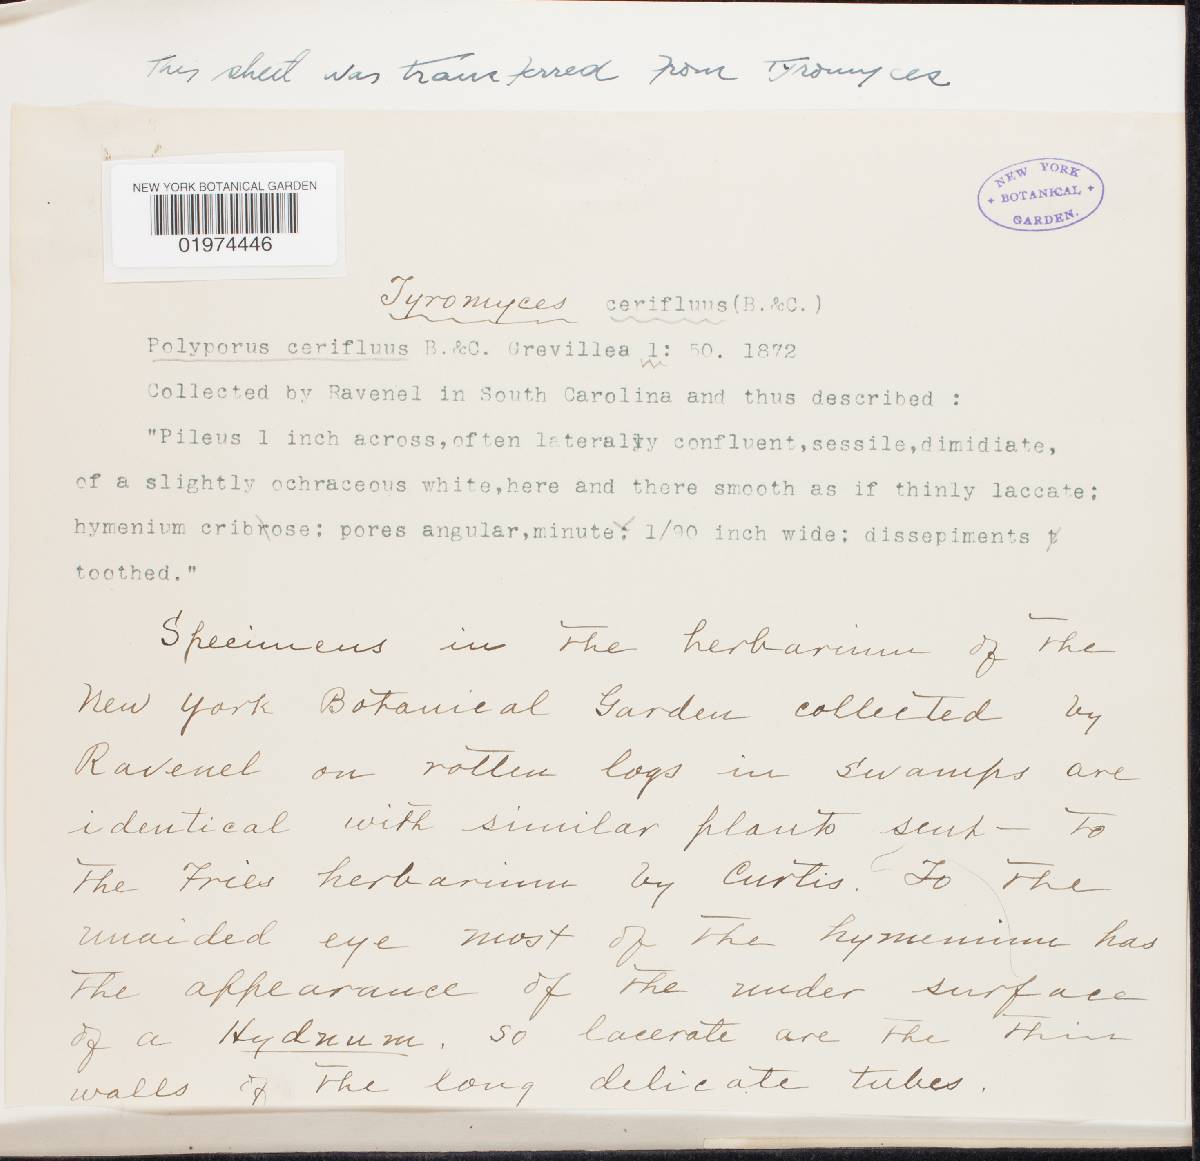 This sheet was transferred from Tyromyces
NEW YORK BOTANICAL GARDEN
01974446
NEW YORK
+ BOTANICAL +
GARDEN.
Tyromyces cerifluus(B.&C.)
Polyporus cerifluus B.&C. Grevillea 1: 50. 1872
Collected by Ravenel in South Carolina and thus described :
"Pileus 1 inch across,often laterally confluent,sessile,dimidiate,
of a slightly ochraceous white,here and there smooth as if thinly laccate;
hymenium cribrose; pores angular,minute; 1/90 inch wide; dissepiments t
toothed."
Specimens in the herbarium of the
New York Botanical Garden collected by
Ravenel on rotten logs in swamps are
identical with similar plants sent to
the Fries herbarium by Curtis. To the
unaided eye most of the hymenium has
the appearance of the under surface
of a Hydnum, so lacerate are the thin
walls of the long delicate tubes.